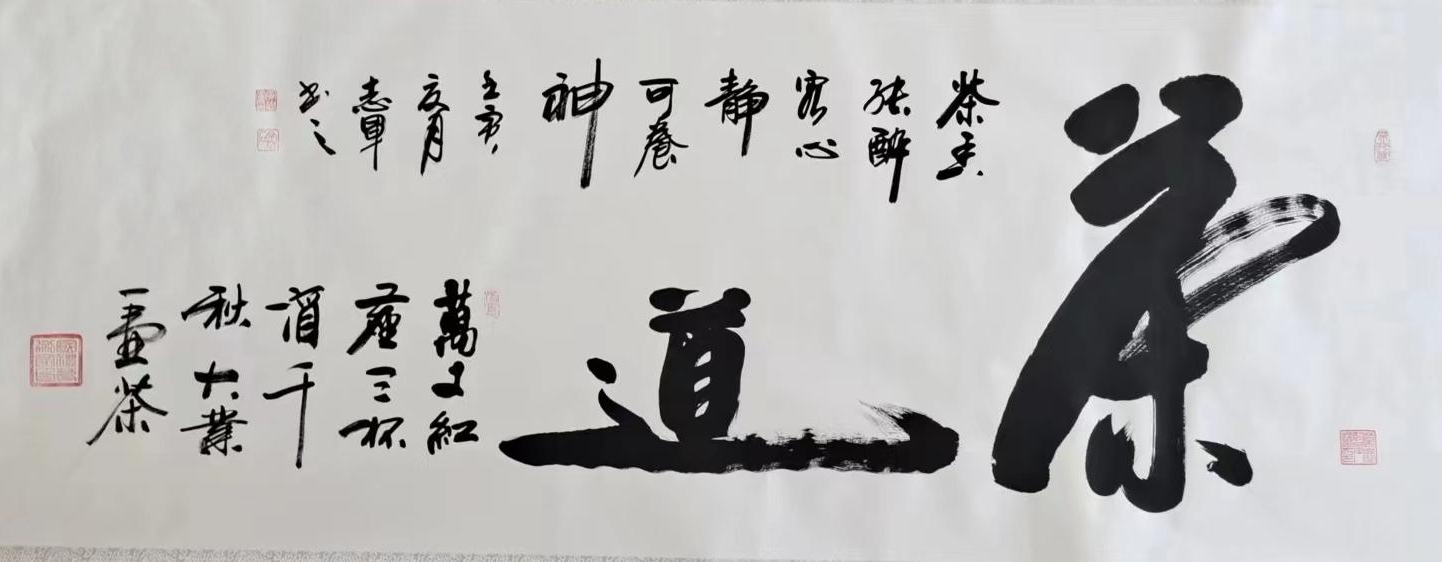 茶道
茶香
能醉
客心
静
可養
神
壬寅
夏月
志軍
书之
萬丈紅
塵三杯
酒千
秋大業
一壺茶